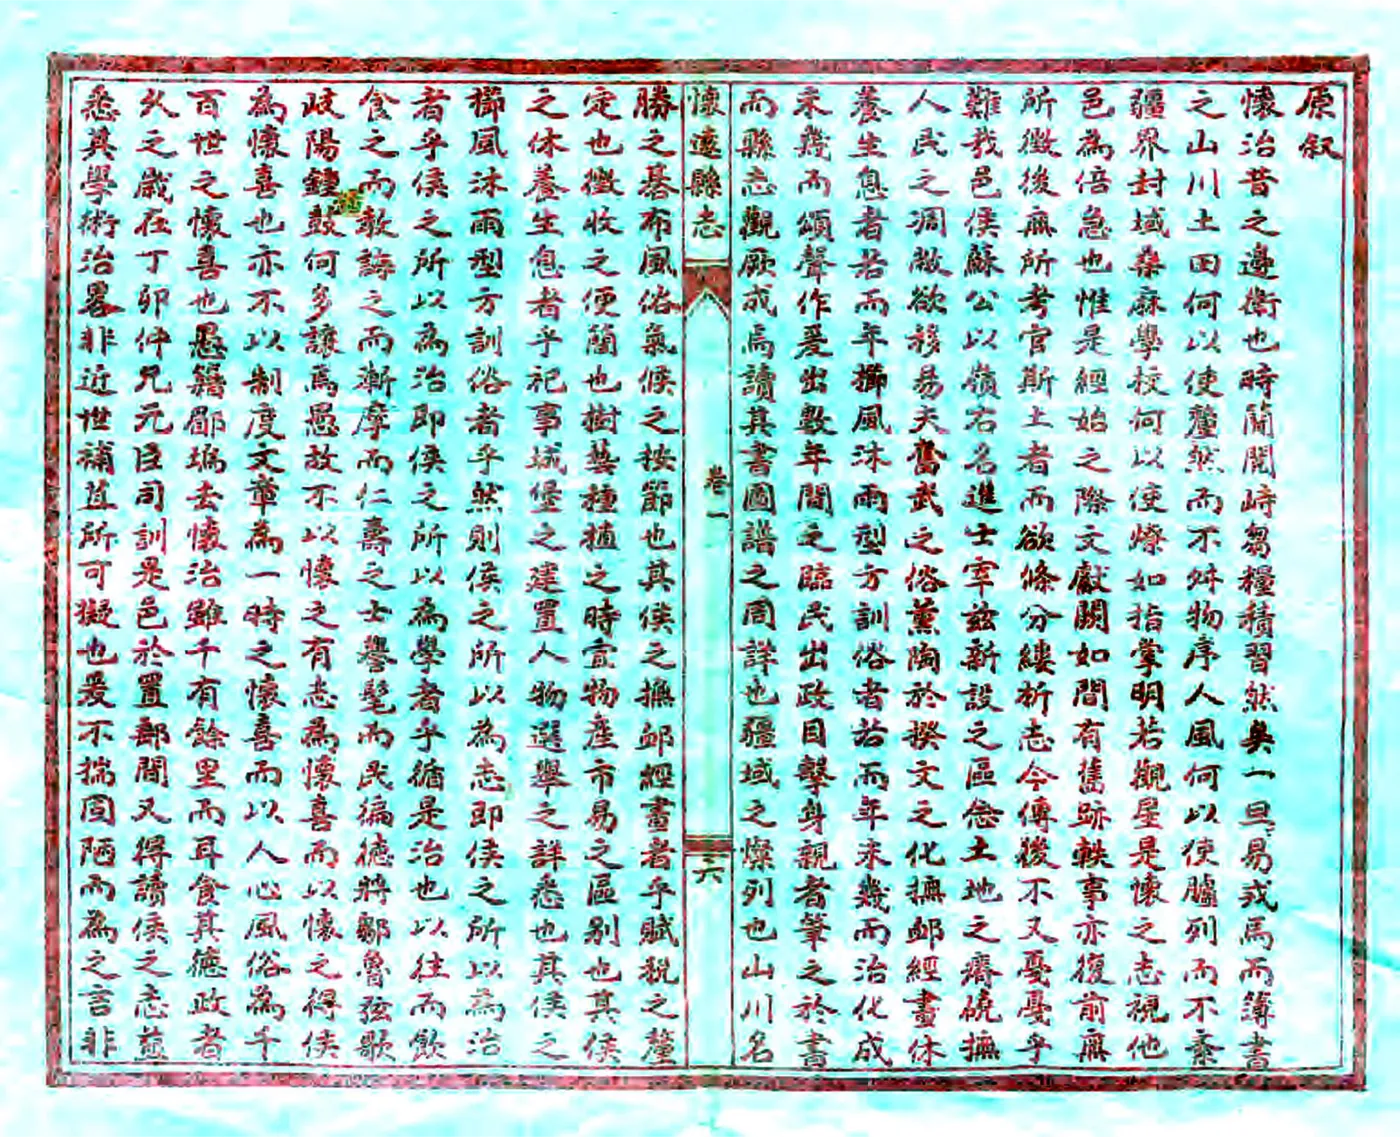 原叙
懷治昔之邊衛也時蘭閱峙芻糧積習然矣一旦易戎馬而簿書
之山川土田何以使釐然而不舛物序人風何以使臚列而不紊
疆界封域桑麻學校何以使燎如指掌明若觀星是懷之志視他
邑為倍急也惟是經始之際文獻闕如間有舊跡軼事亦復前無
所徵後無所考官斯土者而欲條分縷析志今傳後不又戞戞乎
難哉邑侯蘇公以嶺右名進士宰茲新設之區念土地之瘠磽撫
人民之凋敝欲移易夫奮武之俗薰陶於揆文之化撫卹經畫休
養生息者若而年櫛風沐雨型方訓俗者若而年未幾而治化成
未幾而頌聲作爰出數年間之臨民出政目擊身親者筆之於書
而縣志觀厥成焉讀其書圖譜之周詳也疆域之燦列也山川名
懷遠縣志
卷一
六
勝之碁布風俗氣候之按節也其侯之撫卹經畫者乎賦稅之釐
定也徵收之便簡也樹藝種植之時宜物產市易之區別也其侯
之休養生息者乎祀事城堡之建置人物選舉之詳悉也其侯之
櫛風沐雨型方訓俗者乎然則侯之所以為志即侯之所以為治
者乎侯之所以為治即侯之所以為學者乎循是治也以往而飲
食之而教誨之而漸摩而仁壽之士譽髦而民徧德將鄒魯弦歌
岐陽鐘鼓何多讓焉愚故不以懷之有志為懷喜而以懷之得侯
為懷喜也亦不以制度文章為一時之懷喜而以人心風俗為千
百世之懷喜也愚籍郿塢去懷治雖千有餘里而耳食其德政者
久之歲在丁卯仲兄元臣司訓是邑於置郵間又得讀侯之志益
悉其學術治畧非近世補苴所可擬也爰不揣固陋而為之言非